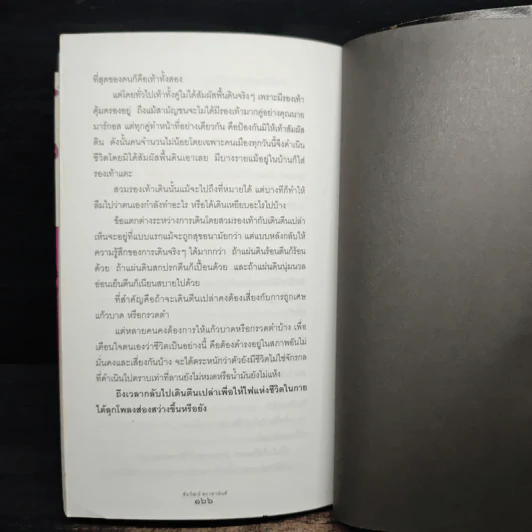 ที่สุดของคนก็คือเท้าทั้งสอง
แต่โดยทั่วไปเท้าทั้งคู่ไม่ได้สัมผัสพื้นดินจริงๆ เพราะมีรองเท้า
คุ้มครองอยู่ ถึงแม้สามัญชนจะไม่ได้มีรองเท้ามากคู่อย่างคุณนาย
มาร์กอส แต่ทุกคู่ทำหน้าที่อย่างเดียวกัน คือป้องกันมิให้เท้าสัมผัส
ดิน ดังนั้นคนจำนวนไม่น้อยโดยเฉพาะคนเมืองทุกวันนี้จึงดำเนิน
ชีวิตโดยมิได้สัมผัสพื้นดินเอาเลย มีบางรายแม้อยู่ในบ้านก็ใส่
รองเท้าแตะ
สวมรองเท้าเดินนั้นแม้จะไปถึงที่หมายได้ แต่บางทีก็ทำให้
ลืมไปว่าตนเองกำลังทำอะไร หรือได้เดินเหยียบอะไรไปบ้าง
ข้อแตกต่างระหว่างการเดินโดยสวมรองเท้ากับเดินตีนเปล่า
เห็นจะอยู่ที่แบบแรกแม้จะถูกสุขอนามัยกว่า แต่แบบหลังกลับให้
ความรู้สึกของการเดินจริงๆ ได้มากกว่า ถ้าแผ่นดินร้อนตีนก็ร้อน
ด้วย ถ้าแผ่นดินสกปรกตีนก็เปื้อนด้วย และถ้าแผ่นดินนุ่มนวล
อ่อนเย็นตีนก็เนียนสบายไปด้วย
ที่สำคัญคือถ้าจะเดินตีนเปล่าคงต้องเสี่ยงกับการถูกเศษ
แก้วบาด หรือกรวดตำ
แต่หลายคนคงต้องการให้แก้วบาดหรือกรวดตำบ้าง เพื่อ
เตือนใจตนเองว่าชีวิตเป็นอย่างนี้ คือต้องดำรงอยู่ในสภาพอันไม่
มั่นคงและเสี่ยงกันบ้าง จะได้ตระหนักว่าตัวยังมีชีวิตไม่ใช่จักรกล
ที่ดำเนินไปตราบเท่าที่ลานยังไม่หมดหรือน้ำมันยังไม่แห้ง
ถึงเวลากลับไปเดินตีนเปล่าเพื่อให้ไฟแห่งชีวิตในกาย
ได้ลุกโพลงส่องสว่างขึ้นหรือยัง
๑๖๖